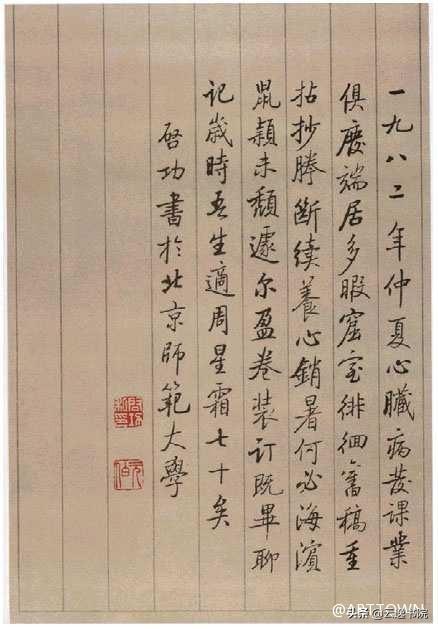 一九八二年仲夏心臟病發課業
俱廢端居多暇窟室徘徊舊稿重
拈抄謄斷續養心銷暑何必海濱
鼠穎未頹遽尔盈卷装訂既畢聊
記歲時吾生適周星霜七十矣
啓功書於北京師範大學
元白
@ARTTOWN
头条 @云逸书院